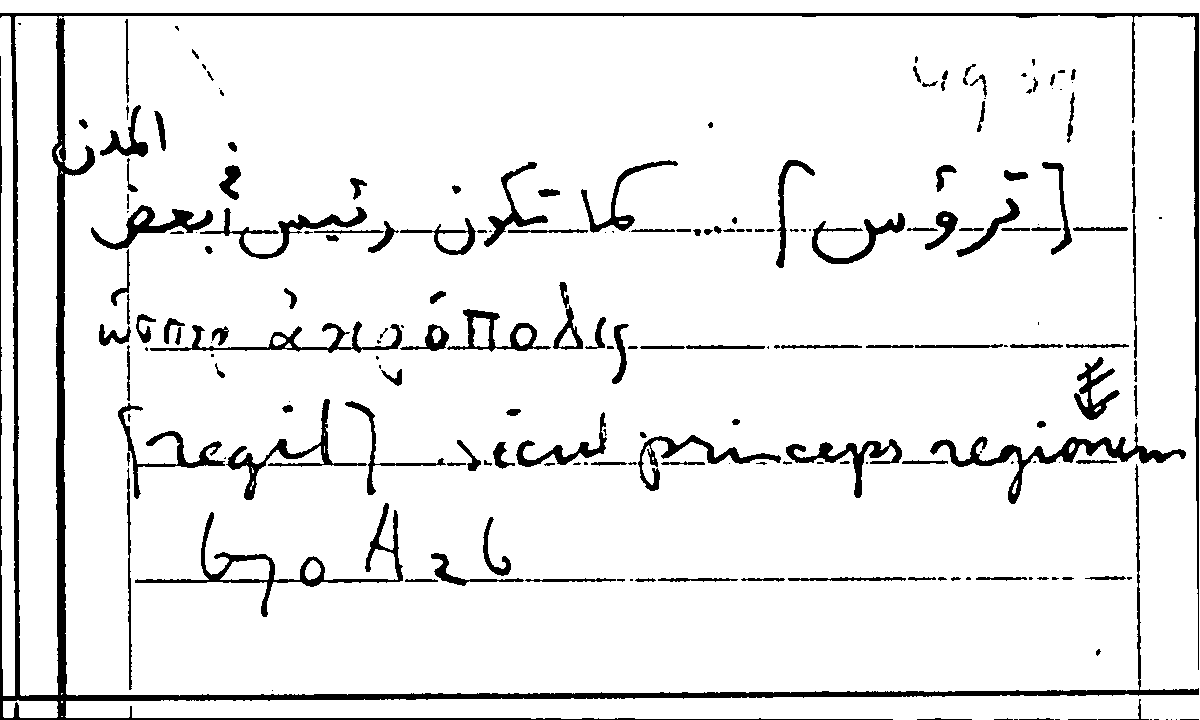 [ترؤس] ... كما تكون رئيس في بعض المدن
ὥσπερ ἀκρόπολις
[regit] sicut princeps regionem
670 A 26